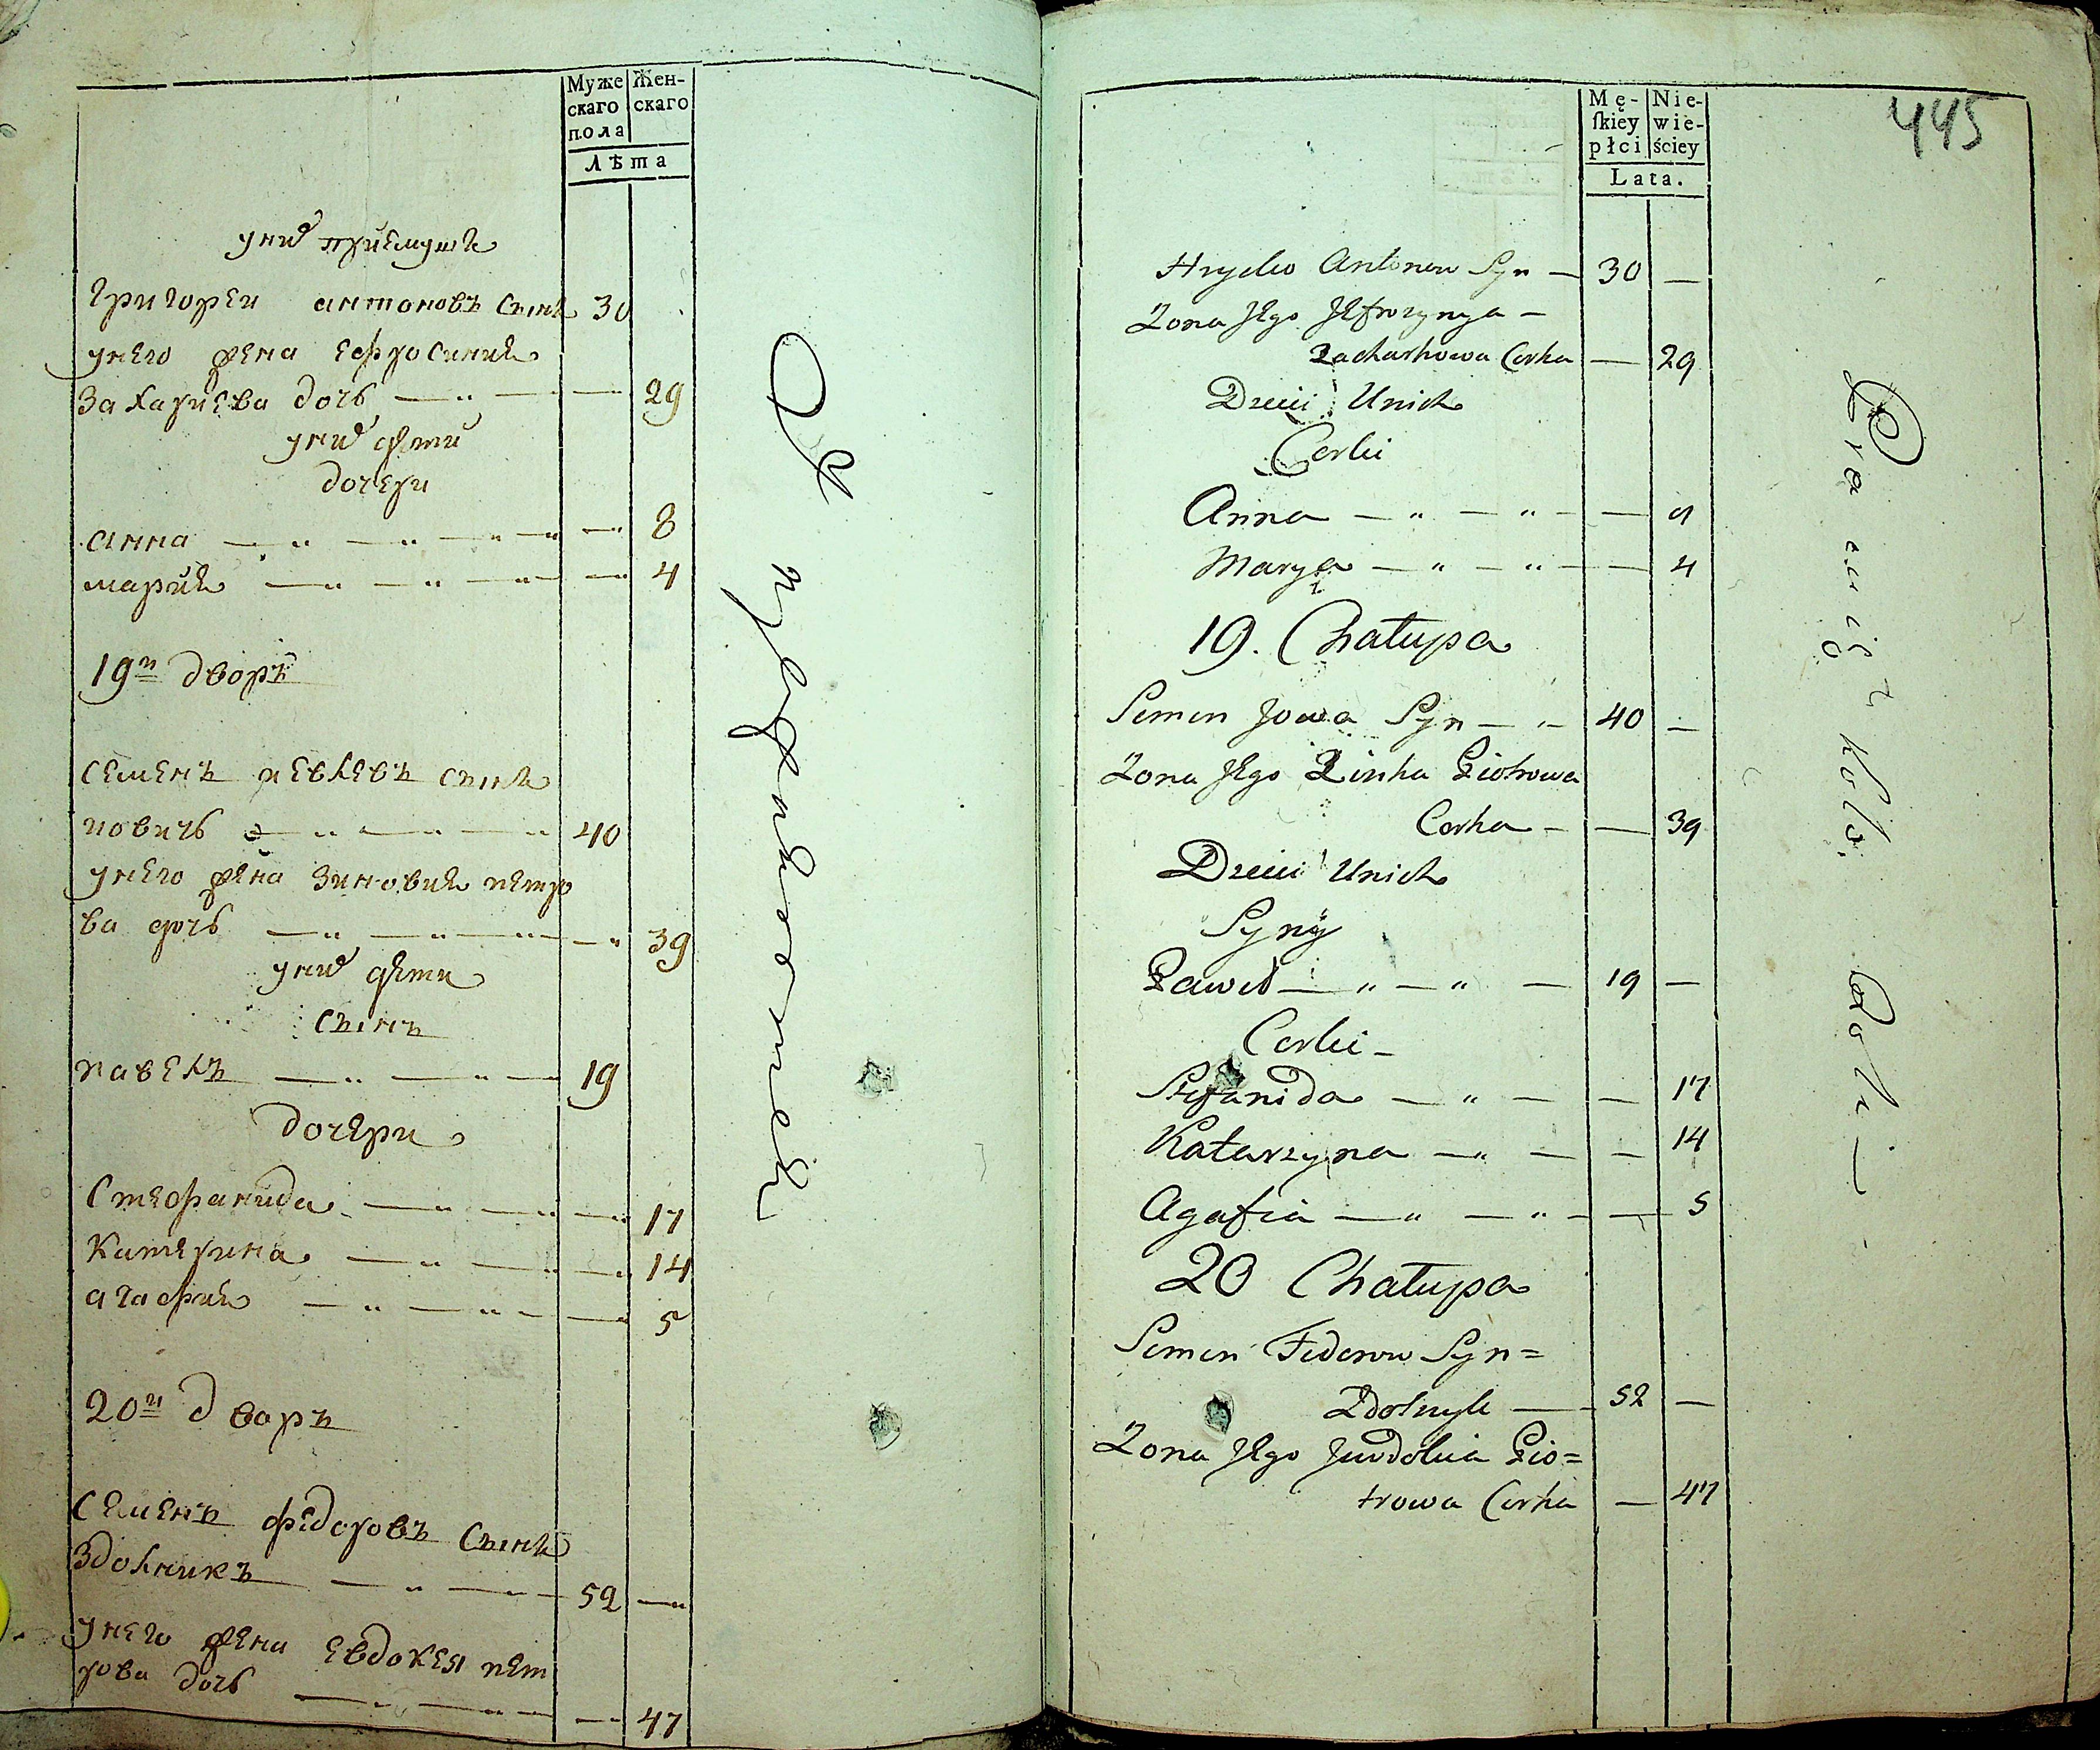 Муже
скаго
пола
Жен-
скаго
лѣта
унихъ приемушъ
Григореи антоновъ сынъ 30
унего жена ефросиния
захариева дочь — „ — — 29
унихъ дети
дочери
анна — „ — „ — „ — „ — „ 8
мария — „ — „ — „ — „ 4
19й дворъ
семенъ сынъ
иовичь — „ — „ — „ 40
унего жена зиновия петро
ва дочь — „ — „ — „ — „ 39
унихъ дети
сынъ
павелъ — „ — „ — 19
дочери
Стефанида — „ — „ — „ 17
Катерина — „ — „ — „ 14
агафия — „ — „ — — „ 5
20й дворъ
Семенъ федоровъ сынъ
Здолникъ — „ — „ — 52 — „
унего жена евдокея пет
рова дочь — „ — „ — — „ 47
445
Mę-
ſkiey
płci
Nie-
wie-
ściey
Lata.
Hryćko Antonow Syn — 30 —
Zona Jego Jefrozynya —
Zacharkowa Corka — 29
Dzieci Unich
Corki
Anna — „ — „ — — 8
Marya — „ — „ — — 4
19. Chałupa
Semen Jowa Syn — „ — 40 —
Zona Jego Zinka Piotrowa
Corka — — 39
Dzieci Unich
Syny
Paweł — „ — „ — 19 —
Corki —
Stefanida — „ — — 17
Katarzyna — „ — — 14
Agafia — „ — „ — — 5
20 Chałupa
Semen Fedorow Syn =
Zdolnyk — 52 —
Zona Jego Jewdokia Pio=
trowa Corka — 47